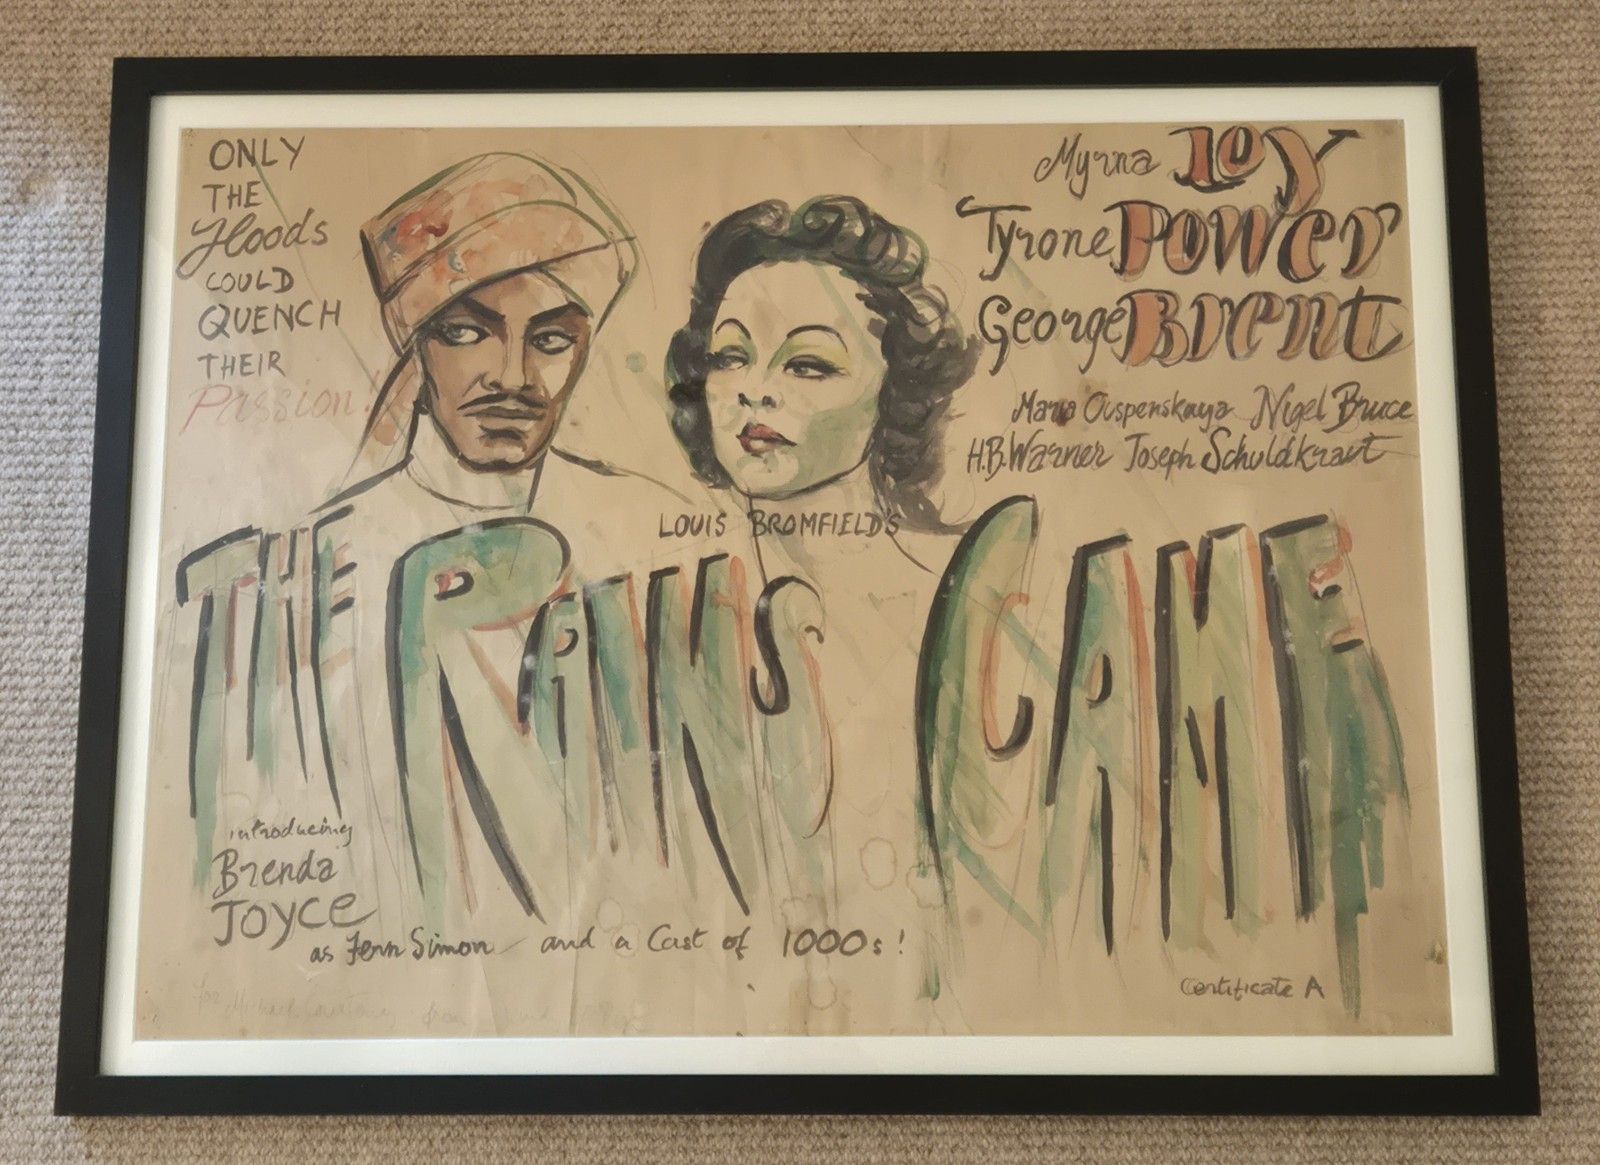 ONLY
THE
Floods
COULD
QUENCH
THEIR
Passion!
Myrna Loy
Tyrone Power
George Brent
Maria Ouspenskaya Nigel Bruce
H.B. Warner Joseph Schuldkraut
LOUIS BROMFIELD'S
THE RAINS CAME
introducing
Brenda
JOYCE
as Fern Simon and a Cast of 1000s!
Certificate A
For Michael